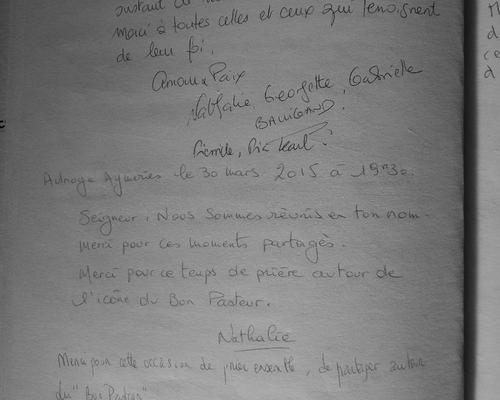 merci à toutes celles et ceux qui témoignent
de leur foi.
Amour & Paix
Nathalie, Georgette, Gabrielle
Aulnoye Aymeries le 30 mars 2015 à 19h30.
Seigneur, Nous sommes réunis en ton nom.
Merci pour ces moments partagés.
Merci pour ce temps de prière autour de
l'icône du Bon Pasteur.
Nathalie
Merci pour cette occasion de prier ensemble, de partager autour
du "Bon Pasteur"